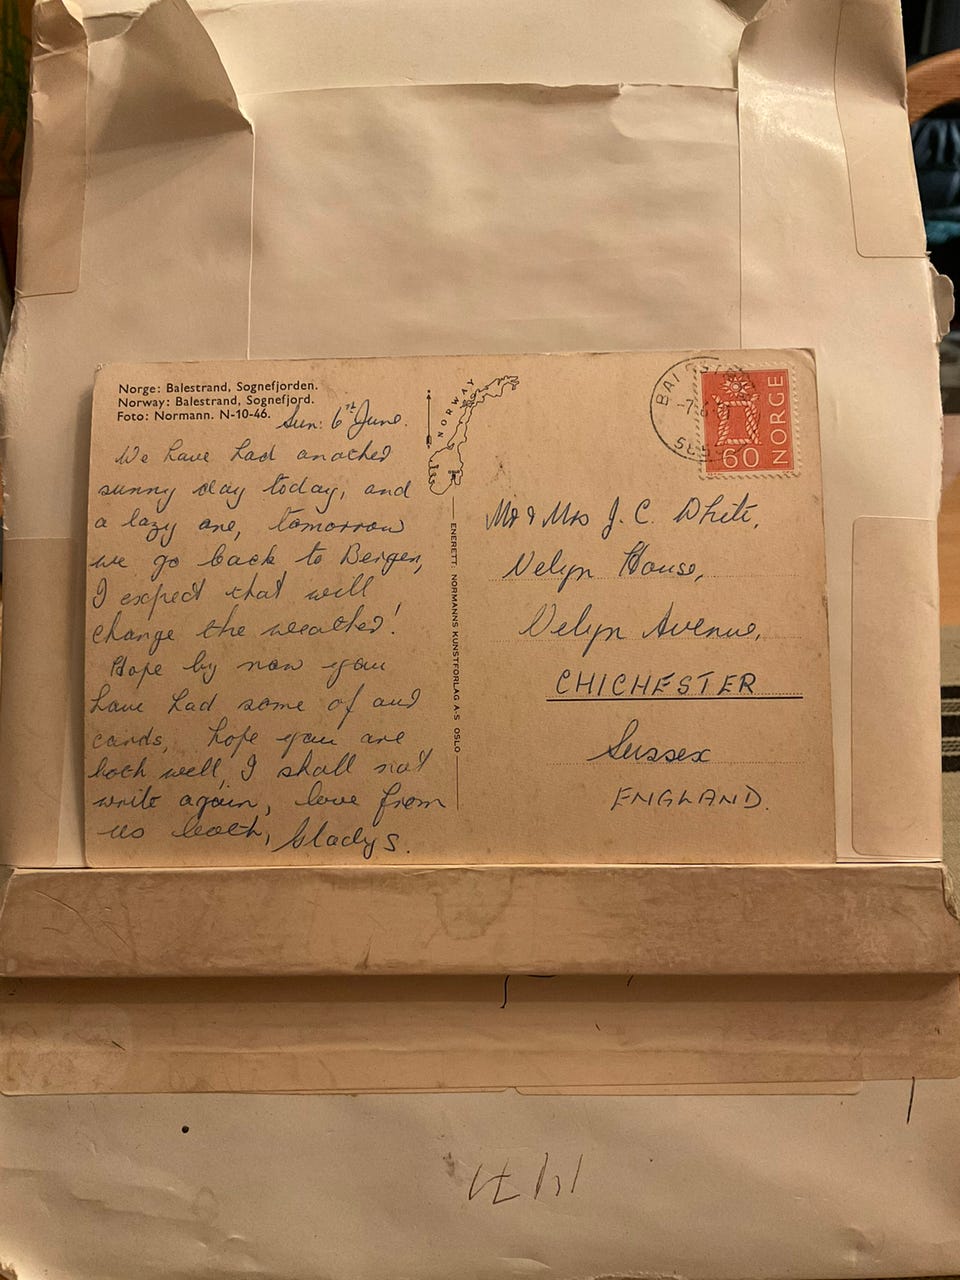 Norge: Balestrand, Sognefjorden.
Norway: Balestrand, Sognefjord.
Foto: Normann. N-10-46.
Sun: 6th June.
We have had another
sunny day today, and
a lazy one, tomorrow
we go back to Bergen,
I expect that will
change the weather!
Hope by now you
have had some of our
cards, hope you are
both well, I shall not
write again, love from
us both, Gladys.
NORWAY
ENERETT: NORMANNS KUNSTFORLAG A-S OSLO
NORGE
60
Mr & Mrs J. C. White,
Velyn House,
Velyn Avenue,
CHICHESTER
Sussex
ENGLAND.